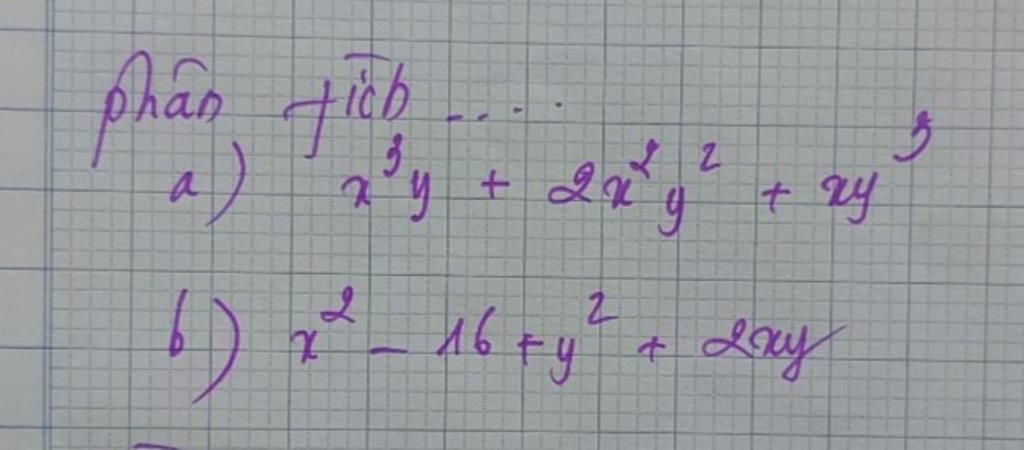 phân tích ....
a) x³y + 2x²y² + xy³
b) x² - 16 + y² + 2xy